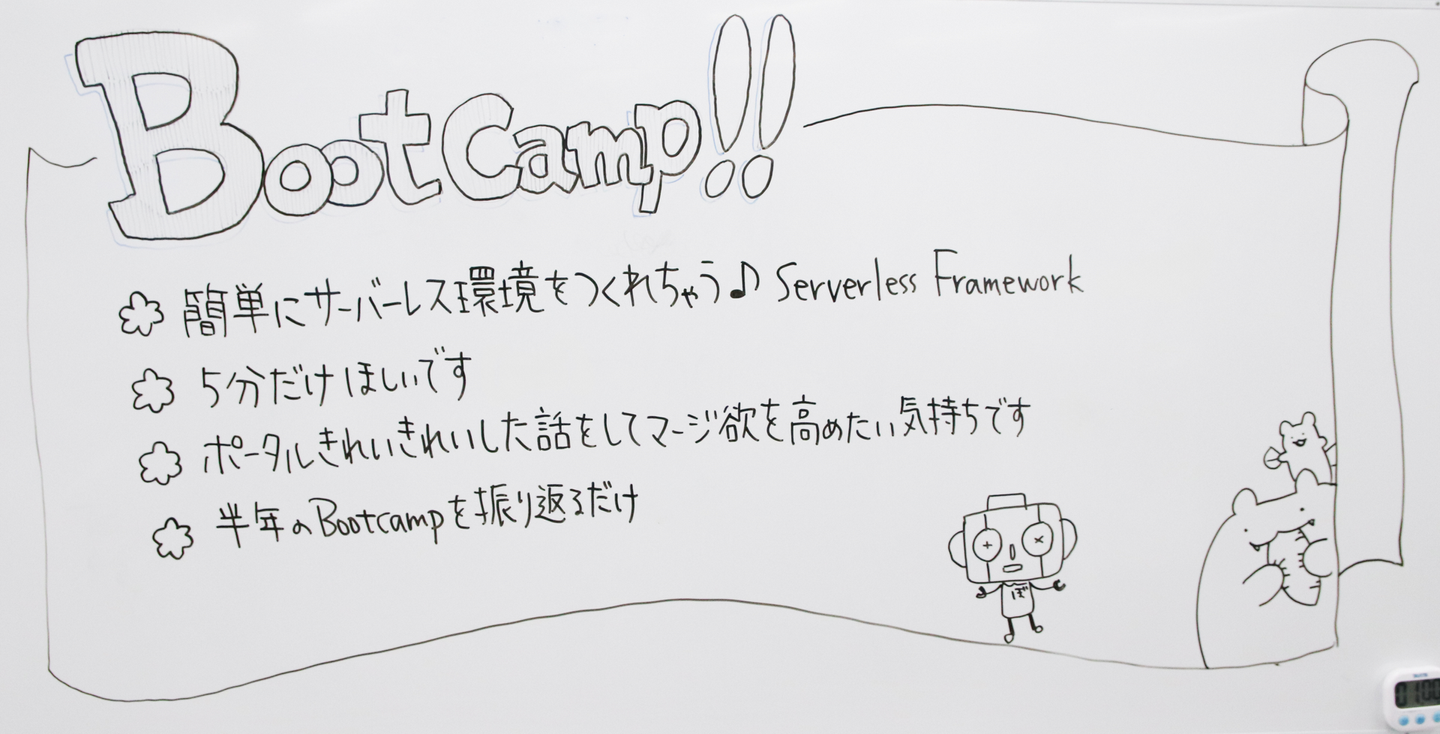 BootCamp!!
簡単にサーバーレス環境をつくれちゃう♪ Serverless Framework
5分だけほしいです
ポータルきれいきれいした話をしてマージ欲を高めたい気持ちです
半年のBootcampを振り返るだけ
ぼ
0100